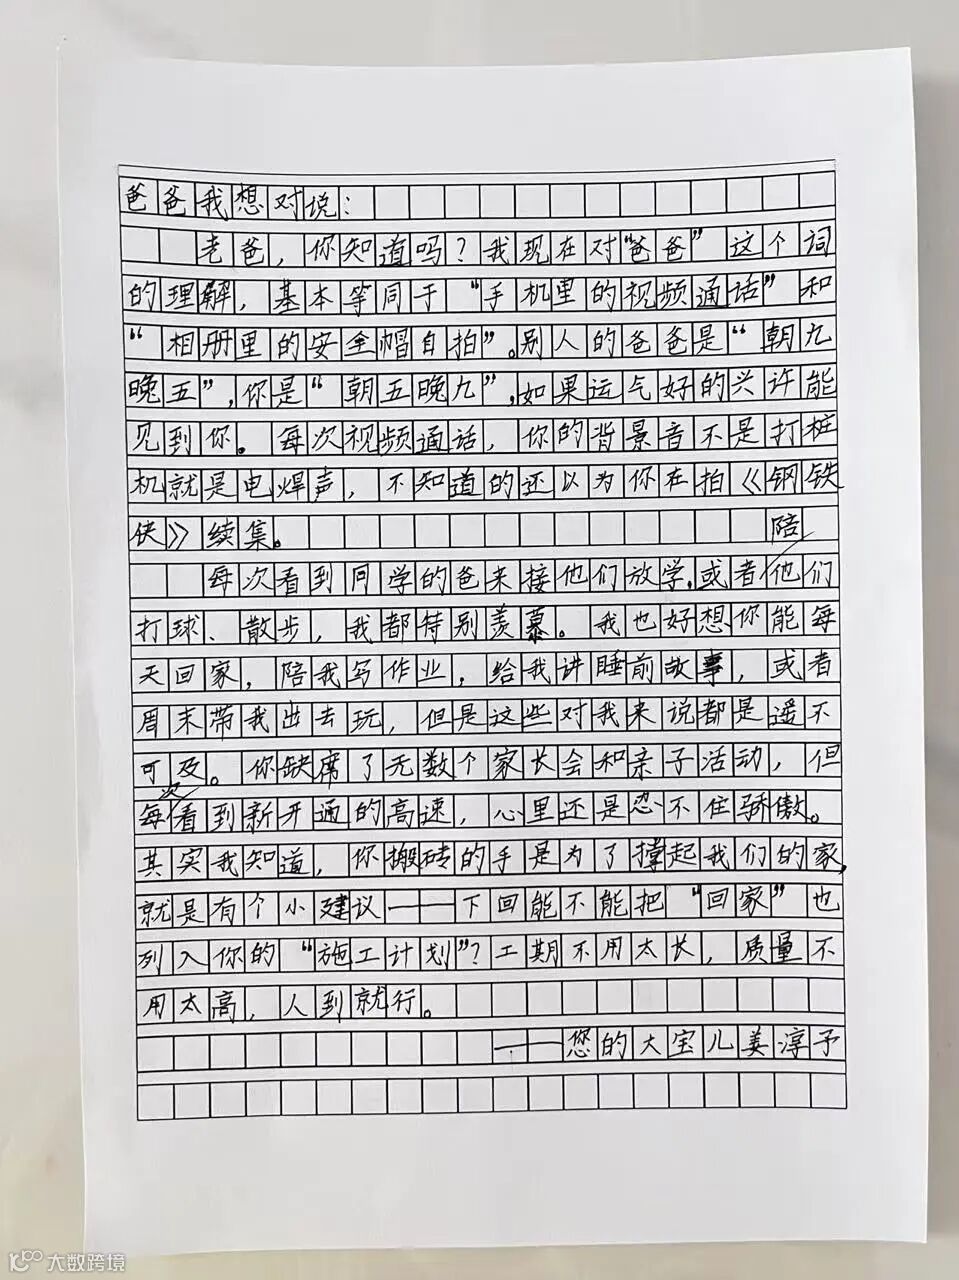 爸爸我想对说：
老爸，你知道吗？我现在对“爸爸”这个词
的理解，基本等同于“手机里的视频通话”和
“相册里的安全帽自拍”。别人的爸爸是“朝九
晚五”，你是“朝五晚九”，如果运气好的兴许能
见到你。每次视频通话，你的背景音不是打桩
机就是电焊声，不知道的还以为你在拍《钢铁
侠》续集。
陪
每次看到同学的爸来接他们放学，或者他们
打球、散步，我都特别羡慕。我也好想你能每
天回家，陪我写作业，给我讲睡前故事，或者
周末带我出去玩，但是这些对我来说都是遥不
可及。你缺席了无数个家长会和亲子活动，但
次
每看到新开通的高速，心里还是忍不住骄傲。
其实我知道，你搬砖的手是为了撑起我们的家，
就是有个小建议——下回能不能把“回家”也
列入你的“施工计划”？工期不用太长，质量不
用太高，人到就行。
——您的大宝儿姜淳予
大数跨境